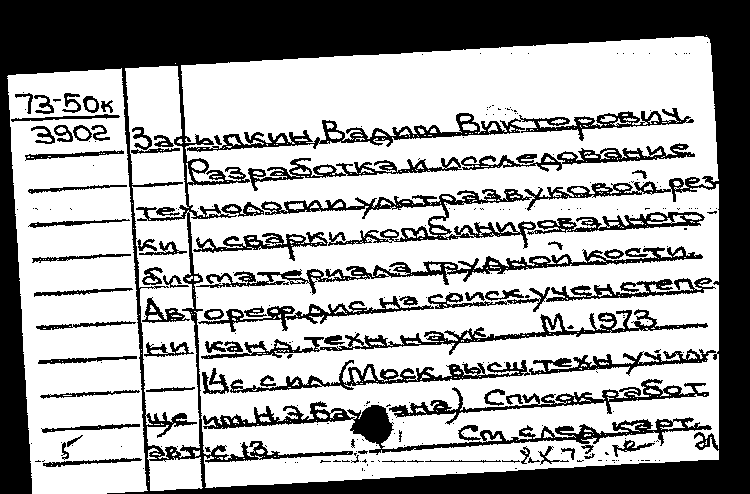 73-50к
3902
Засыпкин, Вадим Викторович.
Разработка и исследование
технологии ультразвуковой рез-
ки и сварки комбинированного
биоматериала грудной кости.
Автореф. дис. на соиск. учен. степе-
ни канд. техн. наук. М., 1973
14 с. с ил. (Моск. высш. техн. учили-
ще им. Н.Э. Баумана) Список работ
авт.: с. 13. См. след. карт.
5 2 X 73 эл